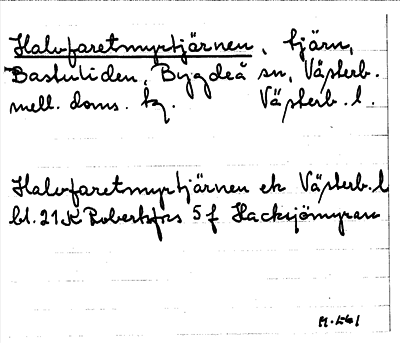 Halvfaretmyrtjärnen, tjärn,
Bastuliden, Bygdeå sn, Västerb.
mell. doms. hg. Västerb. l.
Halvfaretmyrtjärnen ek Västerb. l
bl. 21K Robertsfors 5 f Hacksjömyran